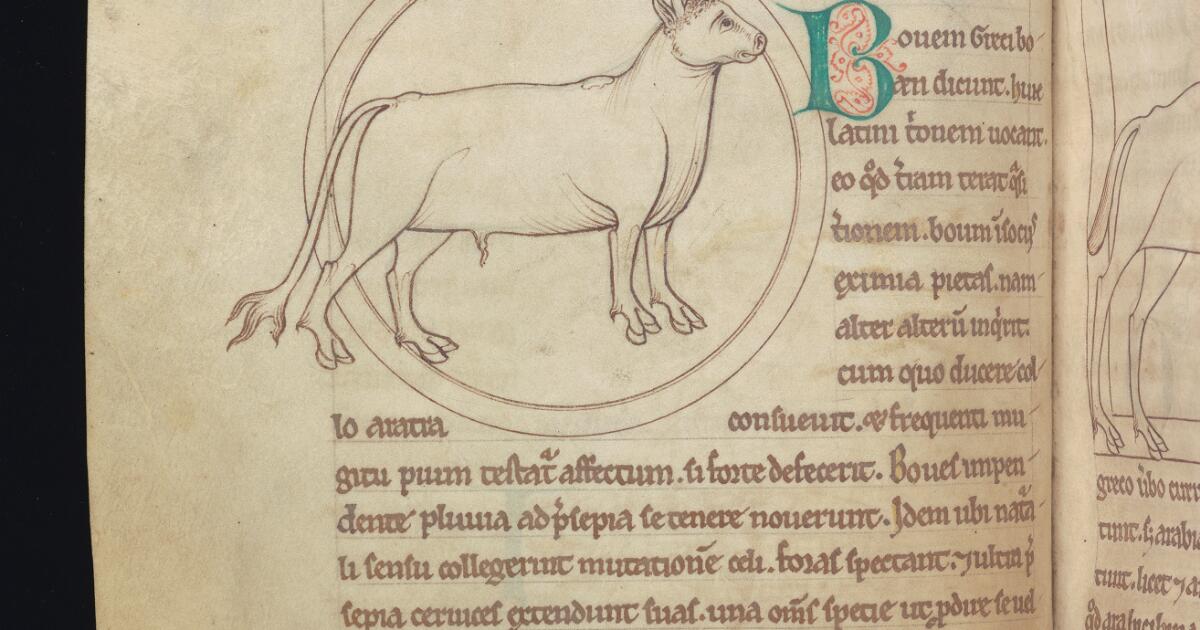 Bouem Greci bo-
aen dicunt. hunc
latini t͛ionem uocant.
eo qḋ t͛ram terat q̇si
t͛ionem. boum ı̄ sociis
eximia pietas. nam
alter alterū inq̇rit.
cum quo ducere col-
lo aratra consueuit. & frequenti mu-
gitu pium testat᷑ affectum. si forte defecerit. Boues impen-
dente pluuia ad p̄sepia se tenere nouerunt. Idem ubi natᷓa-
li sensu collegerint mutationē celi. foras spectant. ⁊ ultra p̄-
sepia ceruices extendunt suas. una om̄s specie ut ꝓdire se uel
greco
arabi
licet ⁊